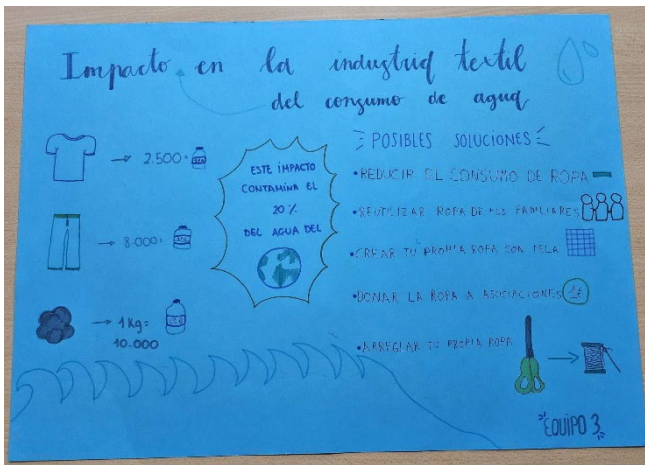 Impacto en la industria textil
del consumo de agua
→ 2.500:
→ 8.000:
→ 1 Kg:
10.000
ESTE IMPACTO
CONTAMINA EL
20 %
DEL AGUA DEL
POSIBLES SOLUCIONES
•REDUCIR EL CONSUMO DE ROPA
•REUTILIZAR ROPA DE TUS FAMILIARES
•CREAR TU PROPIA ROPA CON TELA
•DONAR LA ROPA A ASOCIACIONES
•ARREGLAR TU PROPIA ROPA
"EQUIPO 3"